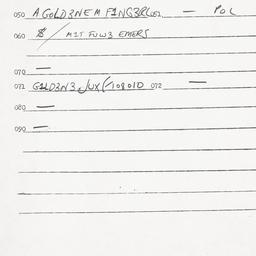 050 A GOLD3NEM F1NG3R 051 — POL
060 $ / MIT FUW3 EMERS
070 —
071 G1LD3N3 JUX 101010 072 —
080 —
090 —